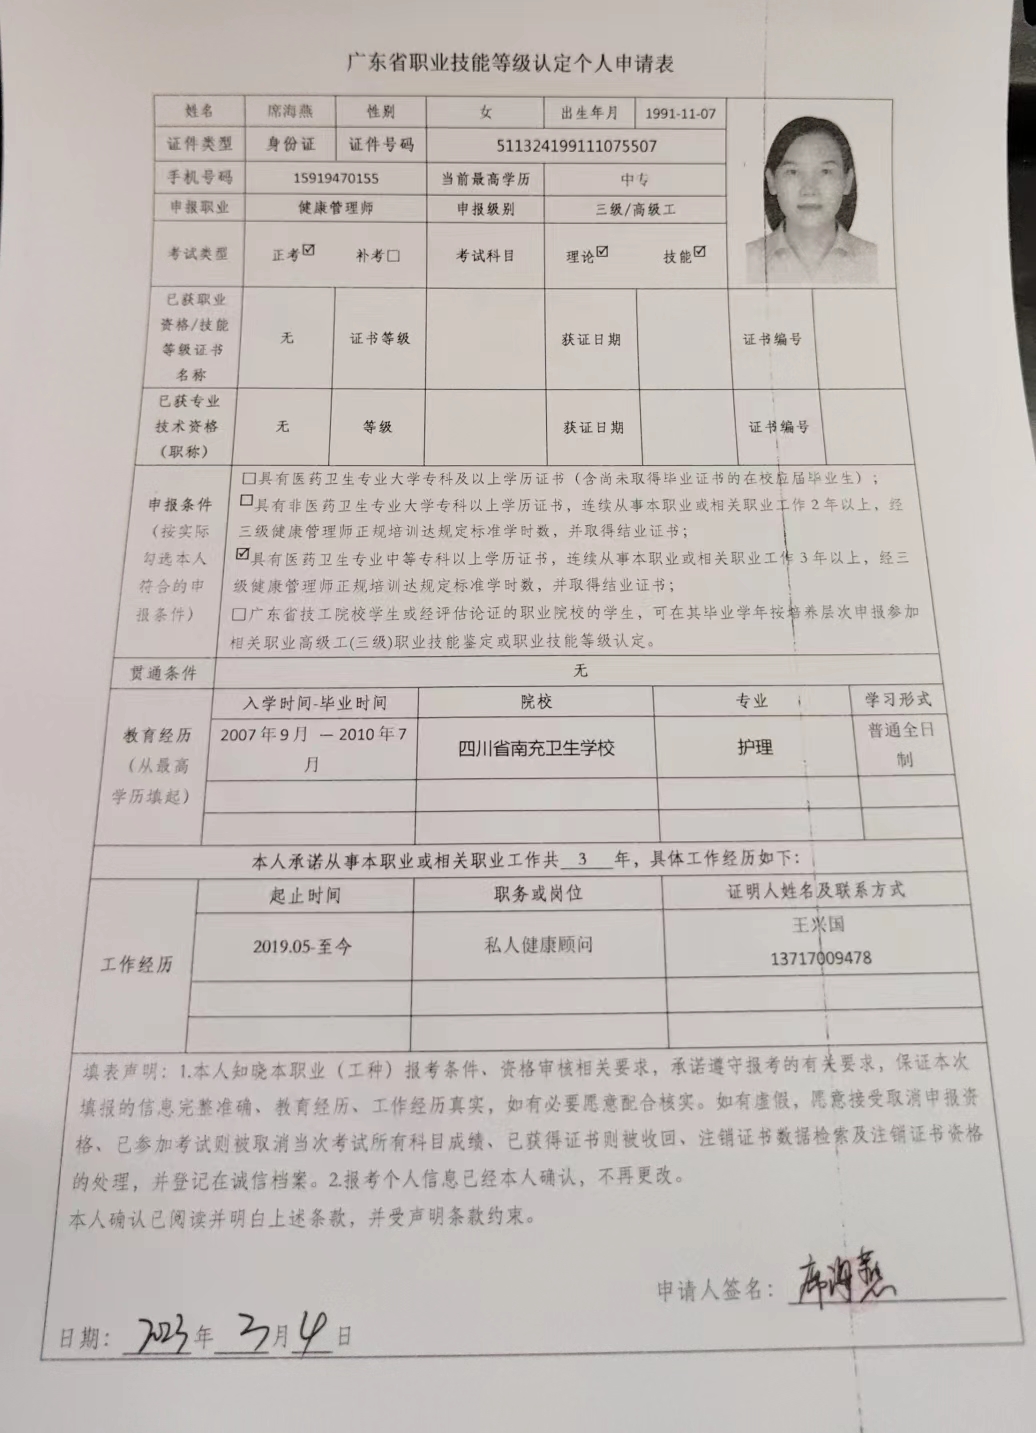 广东省职业技能等级认定个人申请表
姓名 席海燕 性别 女 出生年月 1991-11-07
证件类型 身份证 证件号码 511324199111075507
手机号码 15919470155 当前最高学历 中专
申报职业 健康管理师 申报级别 三级/高级工
考试类型 正考☑ 补考☐ 考试科目 理论☑ 技能☑
已获职业
资格/技能
等级证书
名称
无 证书等级 获证日期 证书编号
已获专业
技术资格
（职称）
无 等级 获证日期 证书编号
申报条件
（按实际
勾选本人
符合的申
报条件）
☐具有医药卫生专业大学专科及以上学历证书（含尚未取得毕业证书的在校应届毕业生）；
☐具有非医药卫生专业大学专科以上学历证书，连续从事本职业或相关职业工作2年以上，经
三级健康管理师正规培训达规定标准学时数，并取得结业证书；
☑具有医药卫生专业中等专科以上学历证书，连续从事本职业或相关职业工作3年以上，经三
级健康管理师正规培训达规定标准学时数，并取得结业证书；
☐广东省技工院校学生或经评估论证的职业院校的学生，可在其毕业学年按培养层次申报参加
相关职业高级工(三级)职业技能鉴定或职业技能等级认定。
贯通条件 无
教育经历
（从最高
学历填起）
入学时间-毕业时间 院校 专业 学习形式
2007年9月 — 2010年7
月
四川省南充卫生学校 护理
普通全日
制
本人承诺从事本职业或相关职业工作共 3 年，具体工作经历如下：
工作经历
起止时间 职务或岗位 证明人姓名及联系方式
2019.05-至今 私人健康顾问
王兴国
13717009478
填表声明：1.本人知晓本职业（工种）报考条件、资格审核相关要求，承诺遵守报考的有关要求，保证本次
填报的信息完整准确、教育经历、工作经历真实，如有必要愿意配合核实。如有虚假，愿意接受取消申报资
格、已参加考试则被取消当次考试所有科目成绩、已获得证书则被收回、注销证书数据检索及注销证书资格
的处理，并登记在诚信档案。2.报考个人信息已经本人确认，不再更改。
本人确认已阅读并明白上述条款，并受声明条款约束。
申请人签名：席海燕
日期：2023年3月4日